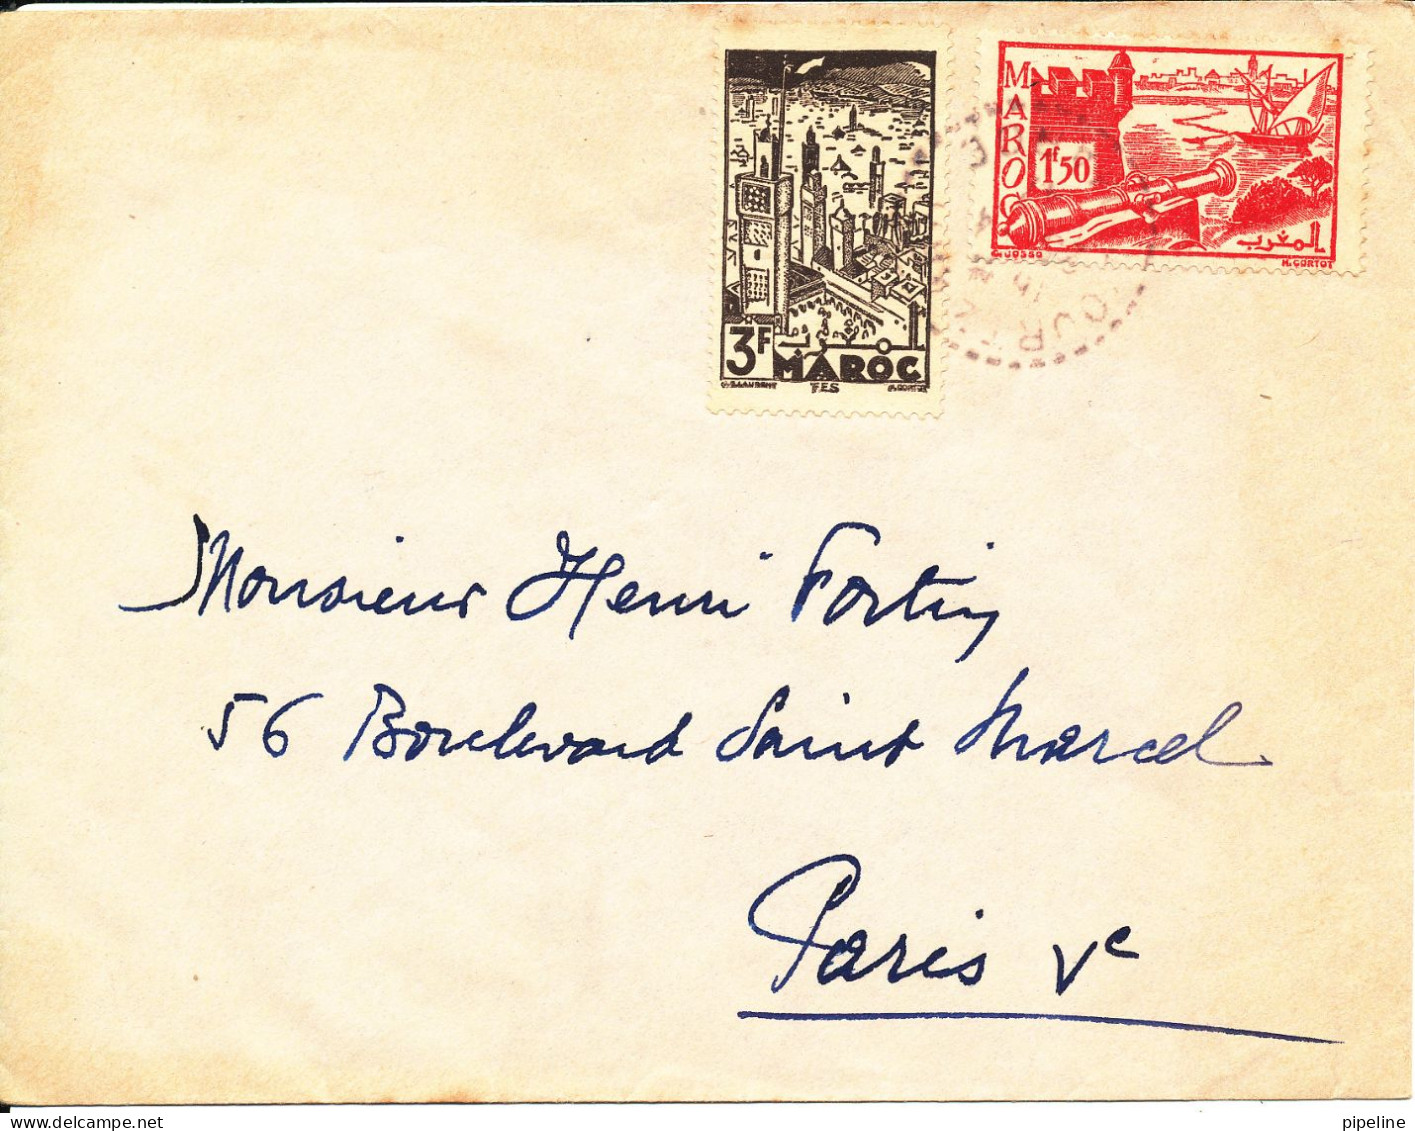 MAROC
1F50
المغرب
C. JOSSO H. CORTOT
3F MAROC
FES
Monsieur Henri Fortin
56 Boulevard Saint Marcel
Paris Ve
pipeline